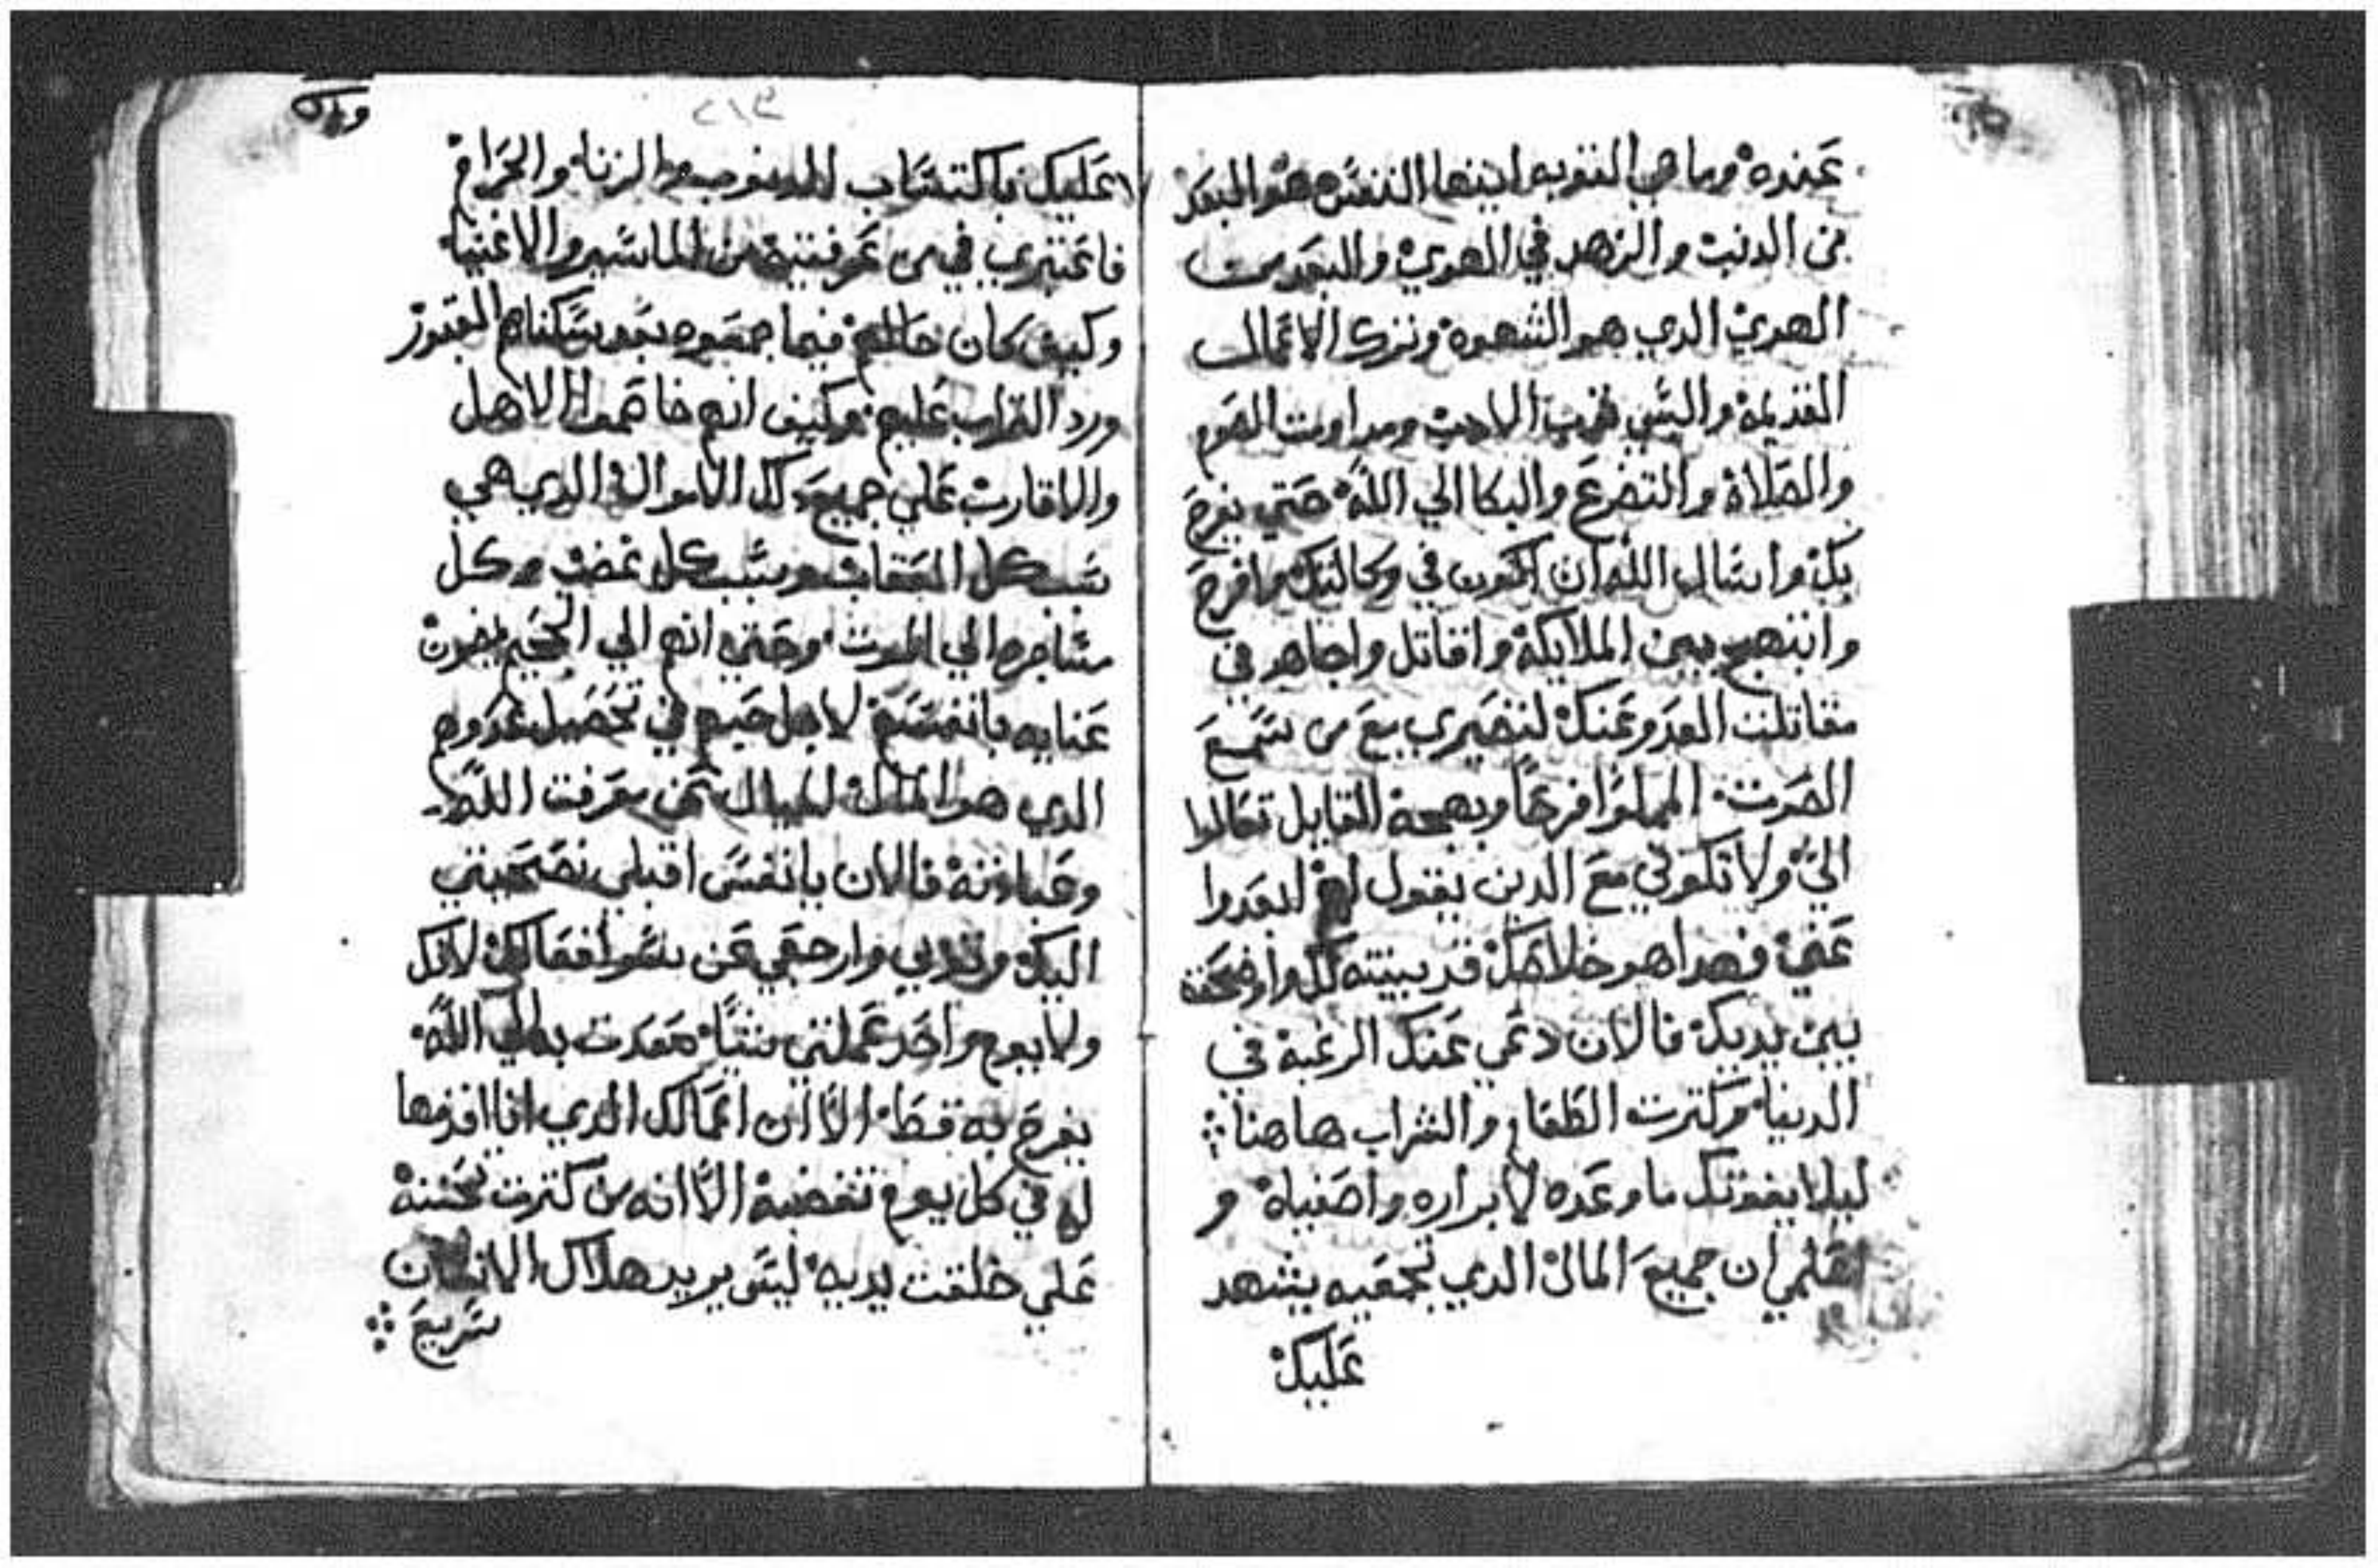 عنده وما هي التوبه ايتها النفس هو البعد
من الدنيا والزهد في الهوي والبعد من
الهوي الدي هو الشهوة وترك الاعمال
القديمة والسي قريب الاحيا ومداومت الصوم
والصلاة والتضرع والبكا الي الله حتي يفرح
بك واسال الله ان اكون في وكالتك وافرح
وابتهج بين الملايكة واقاتل واجاهد في
مقاتلت العدو عنك لتصيري مع من سمع
الصوت المملوا فرحاً وبهجة القايل تعالوا
الي ولا تكوني مع الدين يقول لهم ابعدوا
عني فهدا هو خلاصك قد بينته لك واوضحته
بين يديك فالان دعي عنك الرغبة في
الدنيا وكترت الطعام والشراب هاهنا
ليلا يفوتك ما وعده لابراره واصفياه و
اعلمي ان جميع المال الدي تجمعيه يشهد
عليك
٢١٩
عليك باكتساب الدنوب والزنا والحرام
فاعتبري في من عرفتيه من الناس والاغنيا
وكيف كان حالهم فيما جمعوه بعد سكناهم القبور
ورد التراب عليهم وكيف انهم خاصموا الاهل
والاقارب علي جميع تلك الاموال الدي هي
سبب كل العقاب وسبب كل غضب وكل
مشاجره الي الموت وحتي انهم الي الجحيم يمضون
عنايه بانفسهم لاجل حبهم في تحصيل عدوهم
الدي هو المال عن معرفت الله
وعبادته فالان يا نفس اقبلي نصيحتي
اليك وتوبي وارجعي عن سوا افعالك لانك
ولا يوم واحد عملتي شياً صعدت به الي الله
يفرح به قط الا ان اعمالك الدي انا اقدمها
له في كل يوم تغضبه الا انه من كترت تحننه
علي خلقت يديه ليس يريد هلاك الانسان
سريع